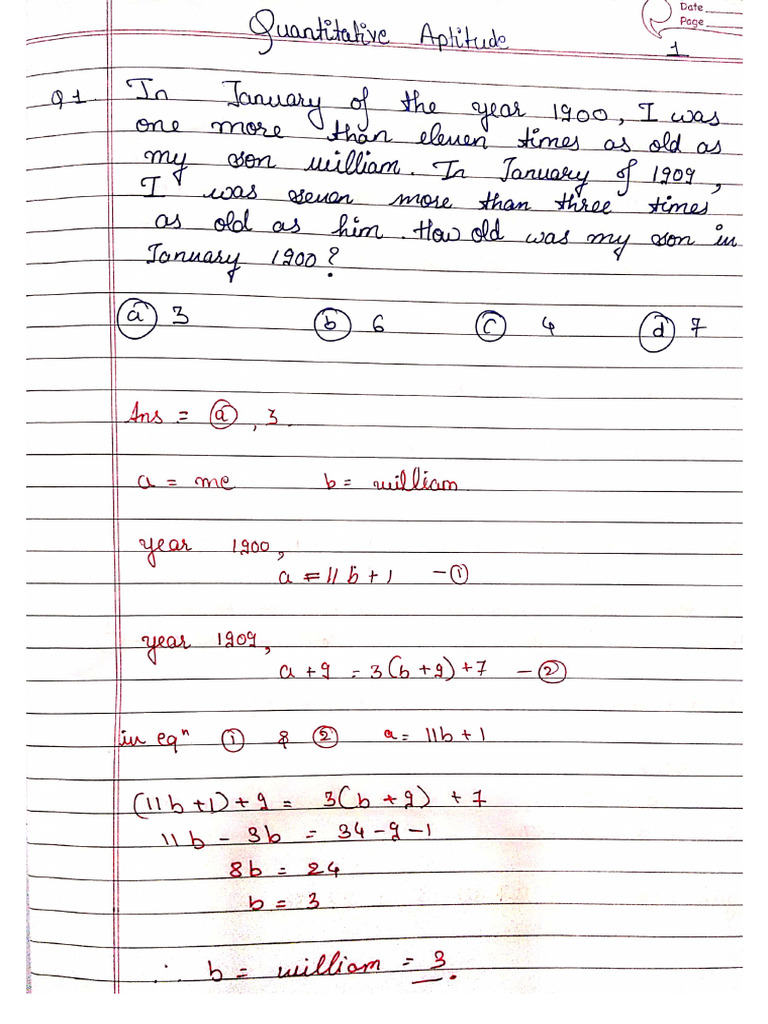 Quantitative Aptitude
Date
Page
1
Q1 In January of the year 1900, I was
one more than eleven times as old as
my son william. In January of 1909,
I was seven more than three times
as old as him. How old was my son in
January 1900?
(a) 3 (b) 6 (c) 4 (d) 7
Ans = (a), 3.
a = me b = william
year 1900,
a = 11b + 1 - (1)
year 1909,
a + 9 = 3(b + 9) + 7 - (2)
in eqⁿ (1) & (2) a = 11b + 1
(11b + 1) + 9 = 3(b + 9) + 7
11b - 3b = 34 - 9 - 1
8b = 24
b = 3
∴ b = william = 3.